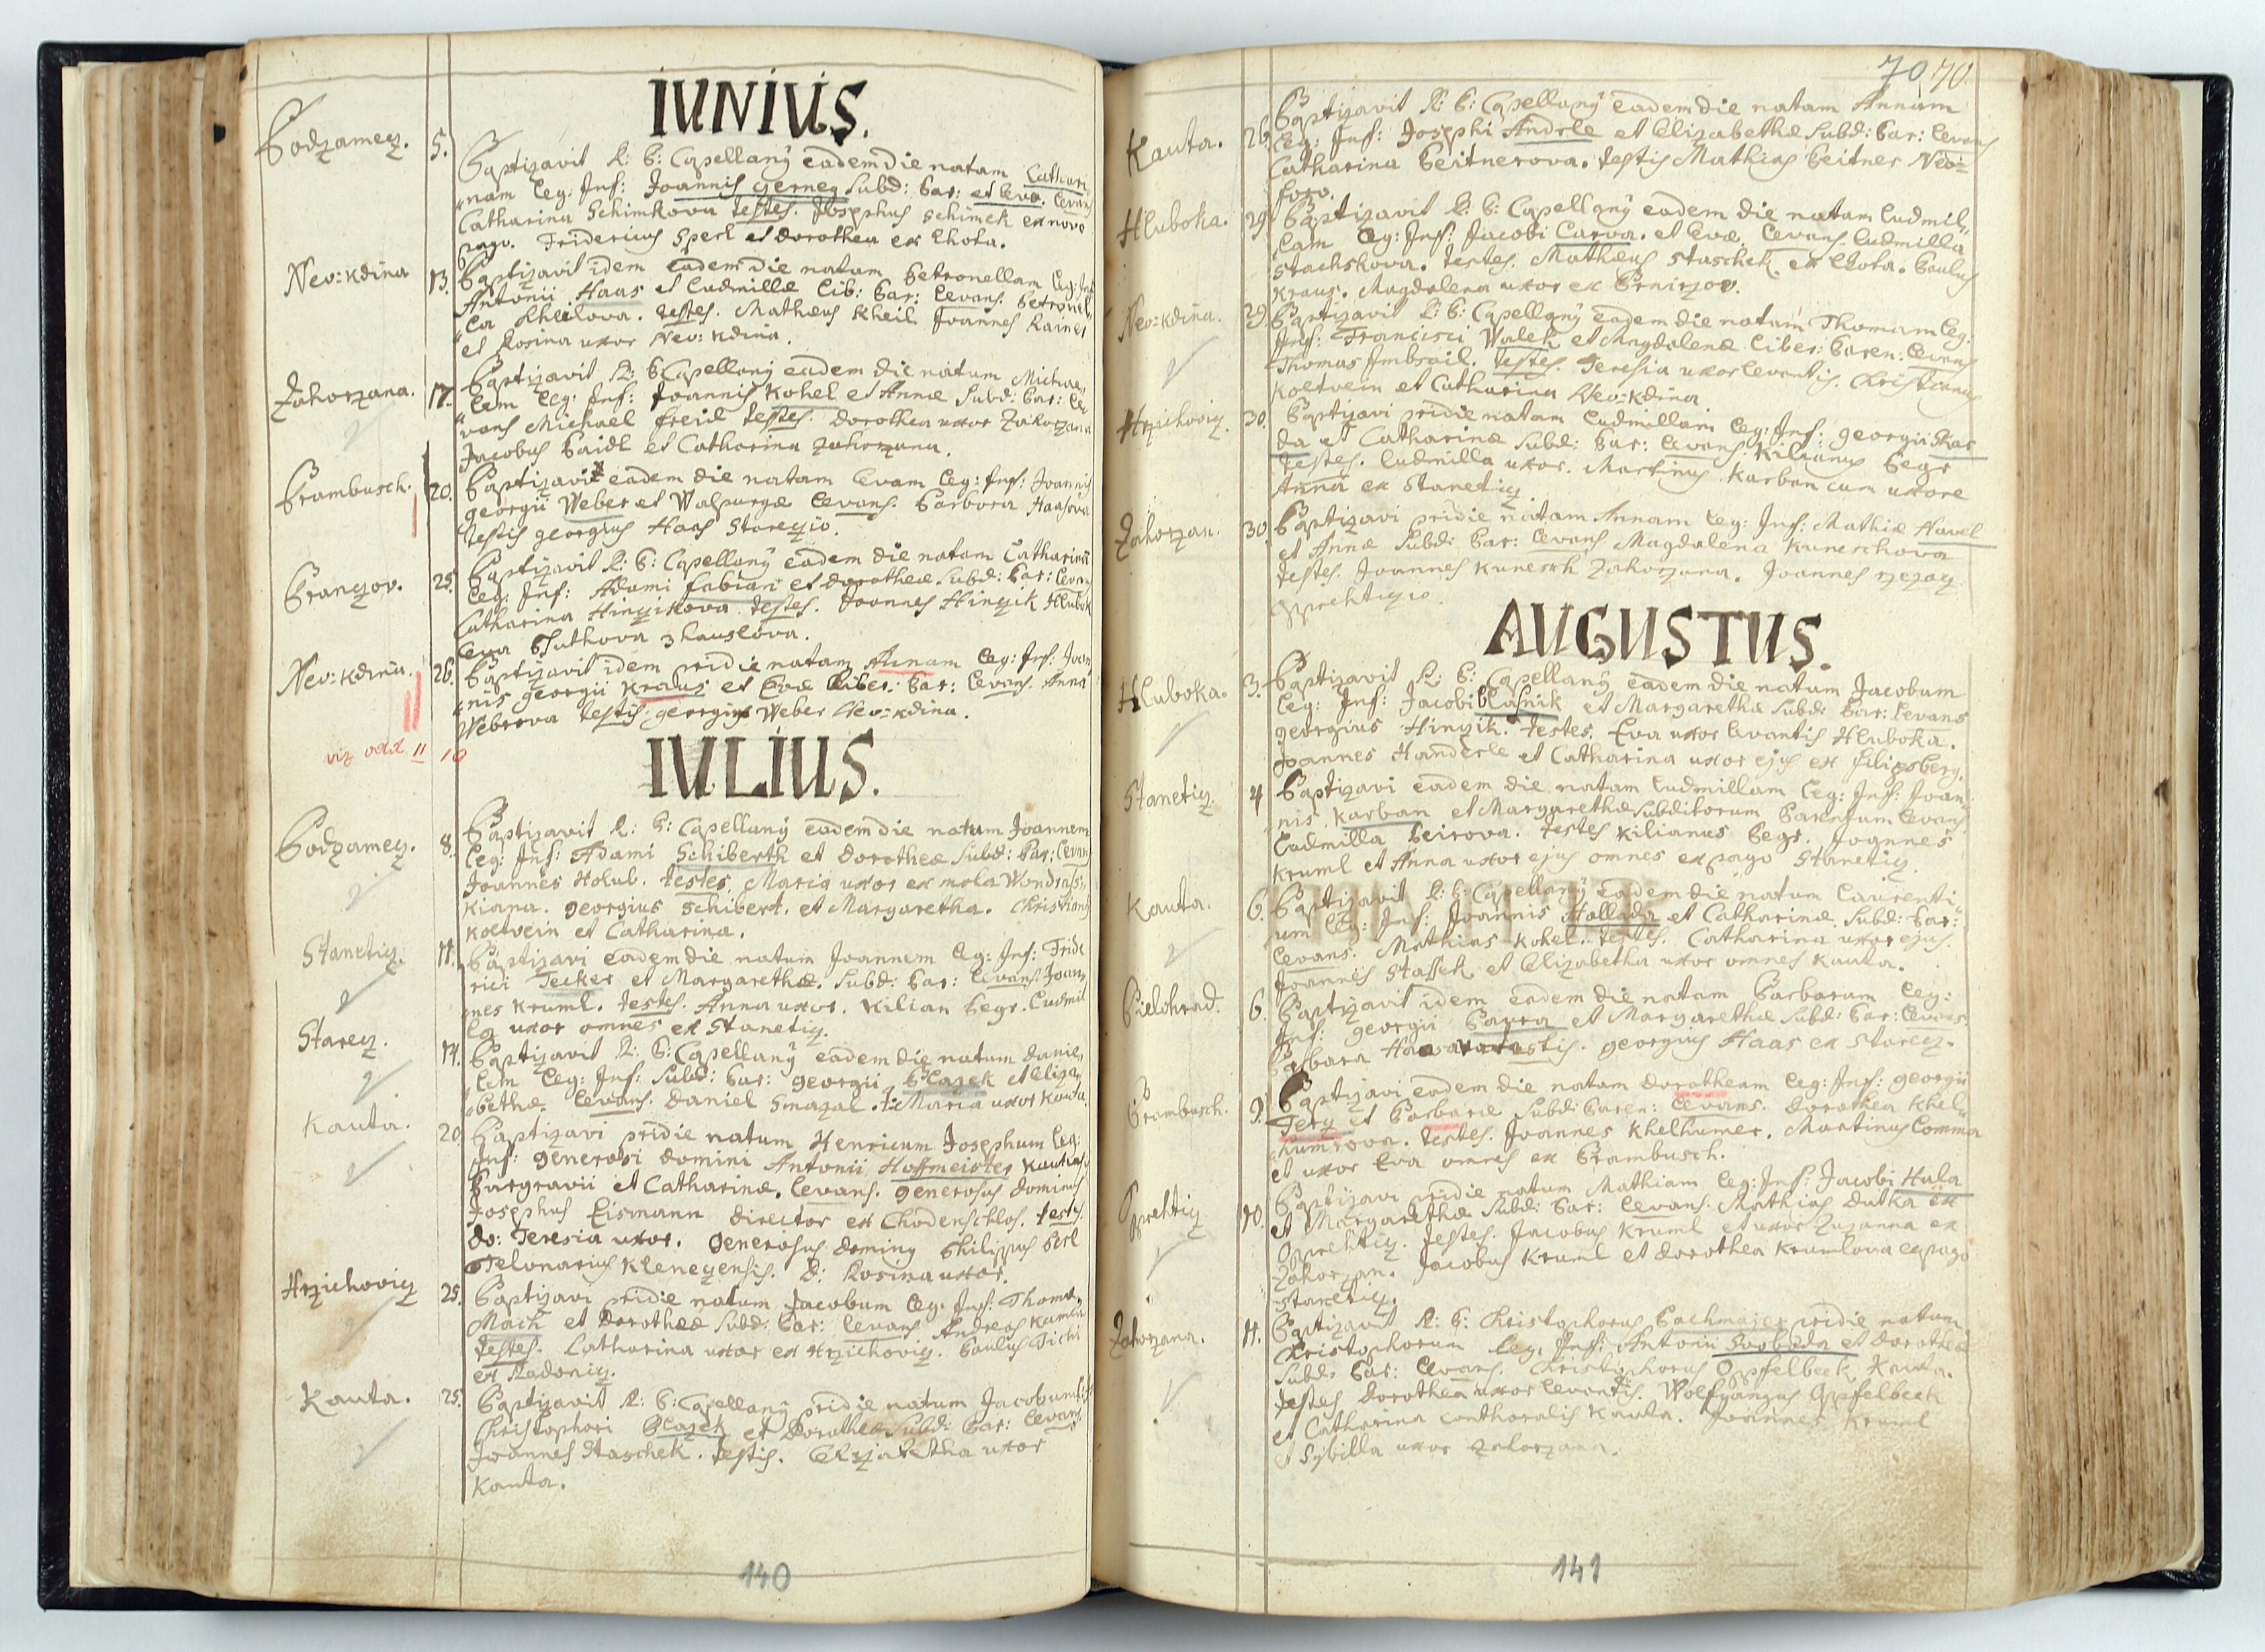 IUNIUS.
Podzamecz. 5. Baptizavit R: P: Capellanȳ eadem die natam Cathari-
nam leg: Inf: Joannis gerneg Subd: Par: et Evæ. levans
Catharina Schimkova testes. Josephus Schimek ex novo
pago. Fridericus Sperl et Dorothea ex Lhota.
Neo: Kdina 13. Baptizavit idem eadem die natam Petronellam leg: Inf:
Antonii Haas et Ludmillæ lib: Par: levans. Petronel-
la Kheilova. testes. Mathæus Kheil. Joannes Rainer
et Rosina uxor Neo: Kdina.
Zahorzana. 17. Baptizavit R: P: Capellanȳ eadem die natum Michae-
lem leg: Inf: Joannis Kohel et Annæ Subd: Par: le-
vans Michael testes. Dorothea uxor Zahorzana
Jacobus Paidl et Catharina Zahorzana.
Prambusch. 20. Baptizavi eadem die natam Evam leg: Inf: Joannis
georgii Weber et Walpurgæ levans. Barbora Haasova
testis georgius Haas Stareczio.
Pranczov. 25. Baptizavit R: P: Capellanȳ eadem die natam Catharinā
leg: Inf: Adami fabian et Dorotheæ Subd: Par: levan
Catharina Hinczikova testes. Joannes Hinczik Hlubok
Eva
Neo: Kdina. 26. Baptizavit idem pridie natam Annam leg: Inf: Joan
nis georgii Kraus et Evæ liber: Par: levans. Anna
Weberova testis. georgius Weber Neo: Kdina.
viz odd. II 10
IULIUS.
Podzamecz. 8. Baptizavit R: P: Capellanȳ eadem die natum Joannem
leg: Inf: Adami Schiberth et Dorotheæ Subd: Par: levan
Joannes Holub. testes. Maria uxor ex mola Wondras-
kiana. georgius Schibert. et Margaretha. Christianȳ
Koltvein et Catharina.
Stanetiz. 11. Baptizavi eadem die natum Joannem leg: Inf: Fride
rici Tecker et Margarethæ. Subd: Par: levans. Joan-
nes Kruml. testes. Anna uxor. Kilian Pegr. Ludmil
la uxor omnes ex Stanetiz.
Starecz. 14. Baptizavit R: P: Capellanȳ eadem die natum Danie-
lem leg: Inf: Subd: Par: georgii Blazek et Eliza-
bethæ. levans. Daniel Smazal. t: Maria uxor Kauta.
Kauta. 20. Baptizavi pridie natum Henricum Josephum leg:
Inf: generosi domini Antonii Hoffmeister Kautens
Burgravii et Catharinæ. levans. generosus dominus
Josephus Eismann director ex Chodenschlos. testes
Do: Teresia uxor. Generosus dominȳ Philippus Perl
Telonarius Kleneczensis. D: Rosina uxor.
Hrzichoviz 25. Baptizavi pridie natum Jacobum leg: Inf: Thomæ
Mach et Dorotheæ Subd: Par: levans Andreas
testes. Catharina uxor ex Hrzichoviz. Paulus Tichi
ex Radoniz.
Kauta. 25. Baptizavit R: P: Capellanȳ pridie natum Jacobum
Christophori Blazek et Dorotheæ Subd: Par: levans
Joannes Staschek. testis. Elizabetha uxor
Kauta.
140
70 70.
Kauta. 26. Baptizavit R: P: Capellanȳ eadem die natam Annam
leg: Inf: Josephi Andrle et Elizabethæ Subd: Par: levans
Catharina Peitnerova. testis Mathias Peitner Neo-
foro.
Hluboka. 29. Baptizavit R: P: Capellanȳ eadem die natam Ludmil-
lam leg: Inf: Jacobi Carva. et Evæ. levans. Ludmilla
Stachskova. testes. Mathæus Staschek. ex Lhota. Paulus
Kraus. Magdalena uxor ex
Neo: Kdina. 29. Baptizavit R: P: Capellanȳ eadem die natum Thomam leg:
Inf: Francisci Walek et Magdalenæ liber: Paren: levans
Thomas Imbrail. testes. Teresia uxor levantis. Christianus
Koltvein et Catharina Neo: Kdina
Hrzichoviz. 30. Baptizavi pridie natam Ludmillam leg: Inf: georgii
da et Catharinæ Subd: Par: levans Kilianus Pegr
testes. Ludmilla uxor. Martinus Karban cum uxore
Anna ex Stanetiz.
Zahorzan. 30. Baptizavi pridie natam Annam leg: Inf: Mathiæ Havel
et Annæ Subd: Par: levans Magdalena Kuneschova
testes. Joannes Kunesch Zahorzana. Joannes rzezacz
oprehticzio.
AUGUSTUS.
Hluboka. 3. Baptizavit R: P: Capellanȳ eadem die natum Jacobum
leg: Inf: Jacobi Klasnik et Margarethæ Subd: Par: levans
georgius Hinczik. testes. Eva uxor levantis Hluboka.
Joannes Handerle et Catharina uxor ejus ex filipsberg.
Stanetiz. 4 Baptizavi eadem die natam Ludmillam leg: Inf: Joan-
nis Karban et Margarethæ Subditorum Parentum levans
Ludmilla Peirova. testes Kilianus Pegr. Joannes
Kruml et Anna uxor ejus omnes ex pago Stanetiz.
Kauta. 6. Baptizavit R: P: Capellanȳ eadem die natum Laurenti-
um leg: Inf: Joannis Hollada et Catharinæ Subd: Par:
levans. Mathias Kohel. testes. Catharina uxor ejus.
Joannes Stassek et Elizabetha uxor omnes Kauta.
Bielohrad. 6. Baptizavit idem eadem die natam Barbaram leg:
Inf: georgii Paura et Margarethæ Subd: Par: levans.
Barbara testis. georgius Haas ex Starecz.
Prambusch. 9. Baptizavi eadem die natam Dorotheam leg: Inf: georgii
Jery et Barbaræ Subd: Paren: levans. Dorothea Khel-
humrova. testes. Joannes Khelhumer. Martinus Comma
et uxor Eva omnes ex Prambusch.
Oprehtiz 10. Baptizavi pridie natum Mathiam leg: Inf: Jacobi Hula
et Margarethæ Subd: Par: levans. Mathias Dutka ex
Oprehtiz. testes. Jacobus Kruml et uxor Zuzanna ex
Zahorzan. Jacobus Kruml et Dorothea Krumlova ex pago
Stanetiz.
Zahorzana. 11. Baptizavit R: P: Christophorus Bachmajer pridie natum
Christophorum leg: Inf: Antonii Svoboda et Dorotheæ
Subd: Par: levans. Christophorus Opfelbeck Kauta.
testes Dorothea uxor levantis. Wolfgangus Opfelbeck
et Catharina conthoralis Kauta. Joannes Kruml
et Sybilla uxor Zahorzana.
141